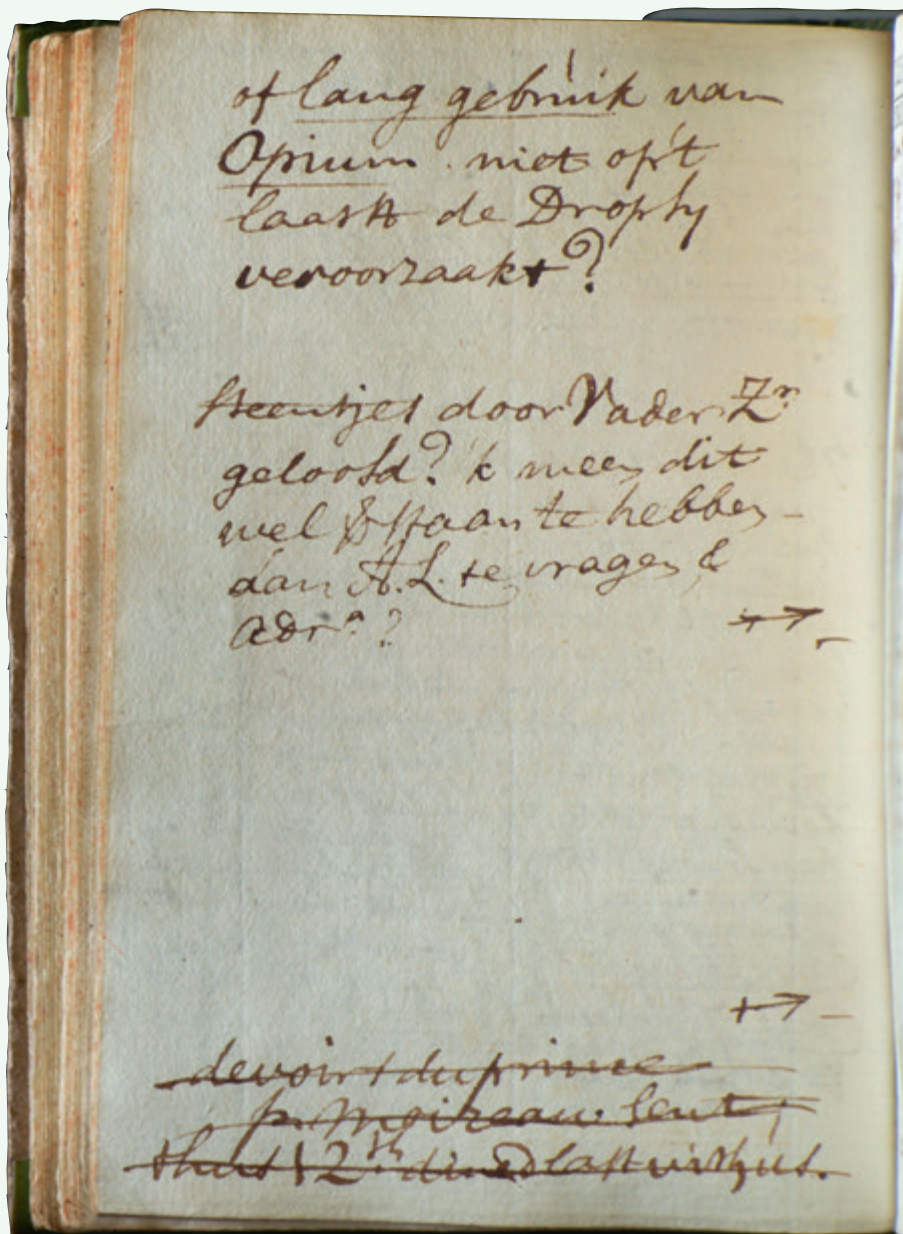 of lang gebruik van
Opium niet op't
laatst de Dropsy
veroorzaakt?
Steentjes door Vader Zr.
geloofd? 'k meen dit
wel te hebben
aan A.L. te vragen &
adrn?
devoirs du prince
p. Moireau. sent
thurs 12th dined last with us.